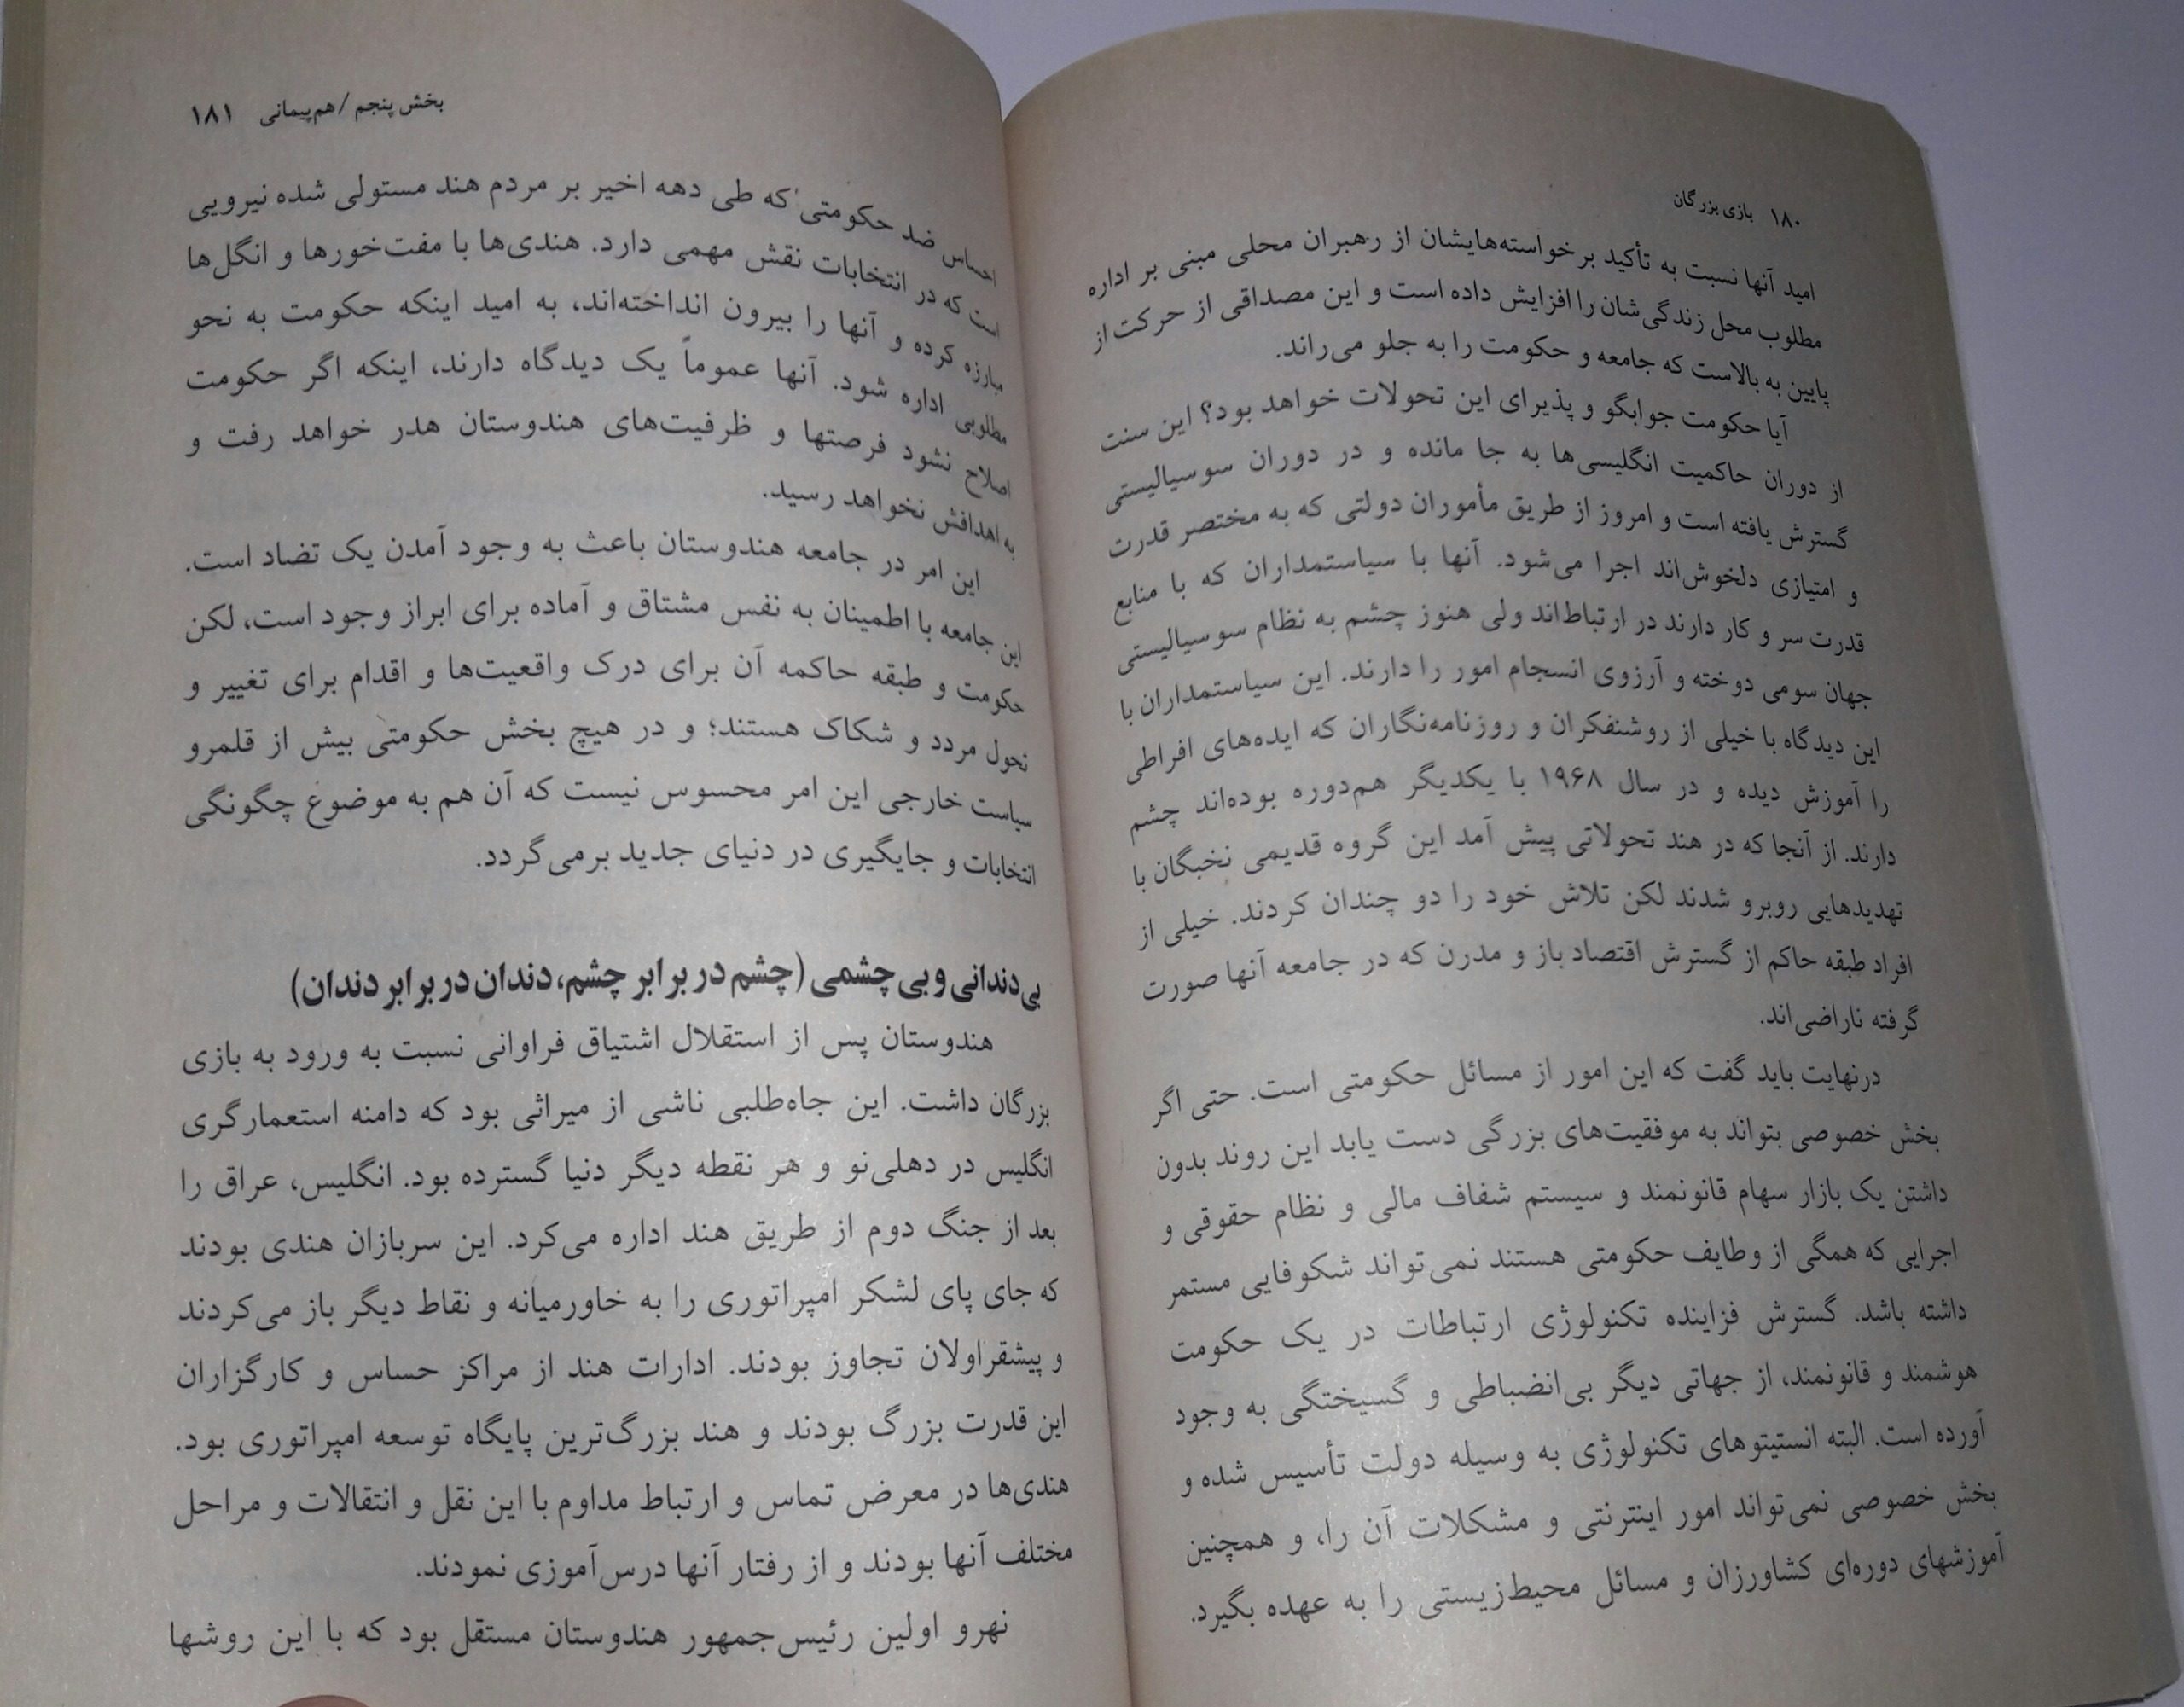 ۱۸۰ بازی بزرگان
امید آنها نسبت به تأکید بر خواسته‌هایشان از رهبران محلی مبنی بر اداره
مطلوب محل زندگی‌شان را افزایش داده است و این مصداقی از حرکت از
پایین به بالاست که جامعه و حکومت را به جلو می‌راند.
آیا حکومت جوابگو و پذیرای این تحولات خواهد بود؟ این سنت
از دوران حاکمیت انگلیسی‌ها به جا مانده و در دوران سوسیالیستی
گسترش یافته است و امروز از طریق مأموران دولتی که به مختصر قدرت
و امتیازی دلخوش‌اند اجرا می‌شود. آنها با سیاستمداران که با منابع
قدرت سر و کار دارند در ارتباط‌اند ولی هنوز چشم به نظام سوسیالیستی
جهان سومی دوخته و آرزوی انسجام امور را دارند. این سیاستمداران با
این دیدگاه با خیلی از روشنفکران و روزنامه‌نگاران که ایده‌های افراطی
را آموزش دیده و در سال ۱۹۶۸ با یکدیگر هم‌دوره بوده‌اند چشم
دارند. از آنجا که در هند تحولاتی پیش آمد این گروه قدیمی نخبگان با
تهدیدهایی روبرو شدند لکن تلاش خود را دو چندان کردند. خیلی از
افراد طبقه حاکم از گسترش اقتصاد باز و مدرن که در جامعه آنها صورت
گرفته ناراضی‌اند.
درنهایت باید گفت که این امور از مسائل حکومتی است. حتی اگر
بخش خصوصی بتواند به موفقیت‌های بزرگی دست یابد این روند بدون
داشتن یک بازار سهام قانونمند و سیستم شفاف مالی و نظام حقوقی و
اجرایی که همگی از وظایف حکومتی هستند نمی‌تواند شکوفایی مستمر
داشته باشد. گسترش فزاینده تکنولوژی ارتباطات در یک حکومت
هوشمند و قانونمند، از جهاتی دیگر بی‌انضباطی و گسیختگی به وجود
آورده است. البته انستیتوهای تکنولوژی به وسیله دولت تأسیس شده و
بخش خصوصی نمی‌تواند امور اینترنتی و مشکلات آن را، و همچنین
آموزشهای دوره‌ای کشاورزان و مسائل محیط‌زیستی را به عهده بگیرد.
بخش پنجم / هم‌پیمانی ۱۸۱
احساس ضد حکومتی که طی دهه اخیر بر مردم هند مستولی شده نیرویی
است که در انتخابات نقش مهمی دارد. هندی‌ها با مفت‌خورها و انگل‌ها
مبارزه کرده و آنها را بیرون انداخته‌اند، به امید اینکه حکومت به نحو
مطلوبی اداره شود. آنها عموماً یک دیدگاه دارند، اینکه اگر حکومت
اصلاح نشود فرصتها و ظرفیت‌های هندوستان هدر خواهد رفت و
به اهدافش نخواهد رسید.
این امر در جامعه هندوستان باعث به وجود آمدن یک تضاد است.
این جامعه با اطمینان به نفس مشتاق و آماده برای ابراز وجود است، لکن
حکومت و طبقه حاکمه آن برای درک واقعیت‌ها و اقدام برای تغییر و
تحول مردد و شکاک هستند؛ و در هیچ بخش حکومتی بیش از قلمرو
سیاست خارجی این امر محسوس نیست که آن هم به موضوع چگونگی
انتخابات و جایگیری در دنیای جدید برمی‌گردد.
بی‌دندانی و بی‌چشمی (چشم در برابر چشم، دندان در برابر دندان)
هندوستان پس از استقلال اشتیاق فراوانی نسبت به ورود به بازی
بزرگان داشت. این جاه‌طلبی ناشی از میراثی بود که دامنه استعمارگری
انگلیس در دهلی‌نو و هر نقطه دیگر دنیا گسترده بود. انگلیس، عراق را
بعد از جنگ دوم از طریق هند اداره می‌کرد. این سربازان هندی بودند
که جای پای لشکر امپراتوری را به خاورمیانه و نقاط دیگر باز می‌کردند
و پیشقراولان تجاوز بودند. ادارات هند از مراکز حساس و کارگزاران
این قدرت بزرگ بودند و هند بزرگ‌ترین پایگاه توسعه امپراتوری بود.
هندی‌ها در معرض تماس و ارتباط مداوم با این نقل و انتقالات و مراحل
مختلف آنها بودند و از رفتار آنها درس‌آموزی نمودند.
نهرو اولین رئیس‌جمهور هندوستان مستقل بود که با این روشها